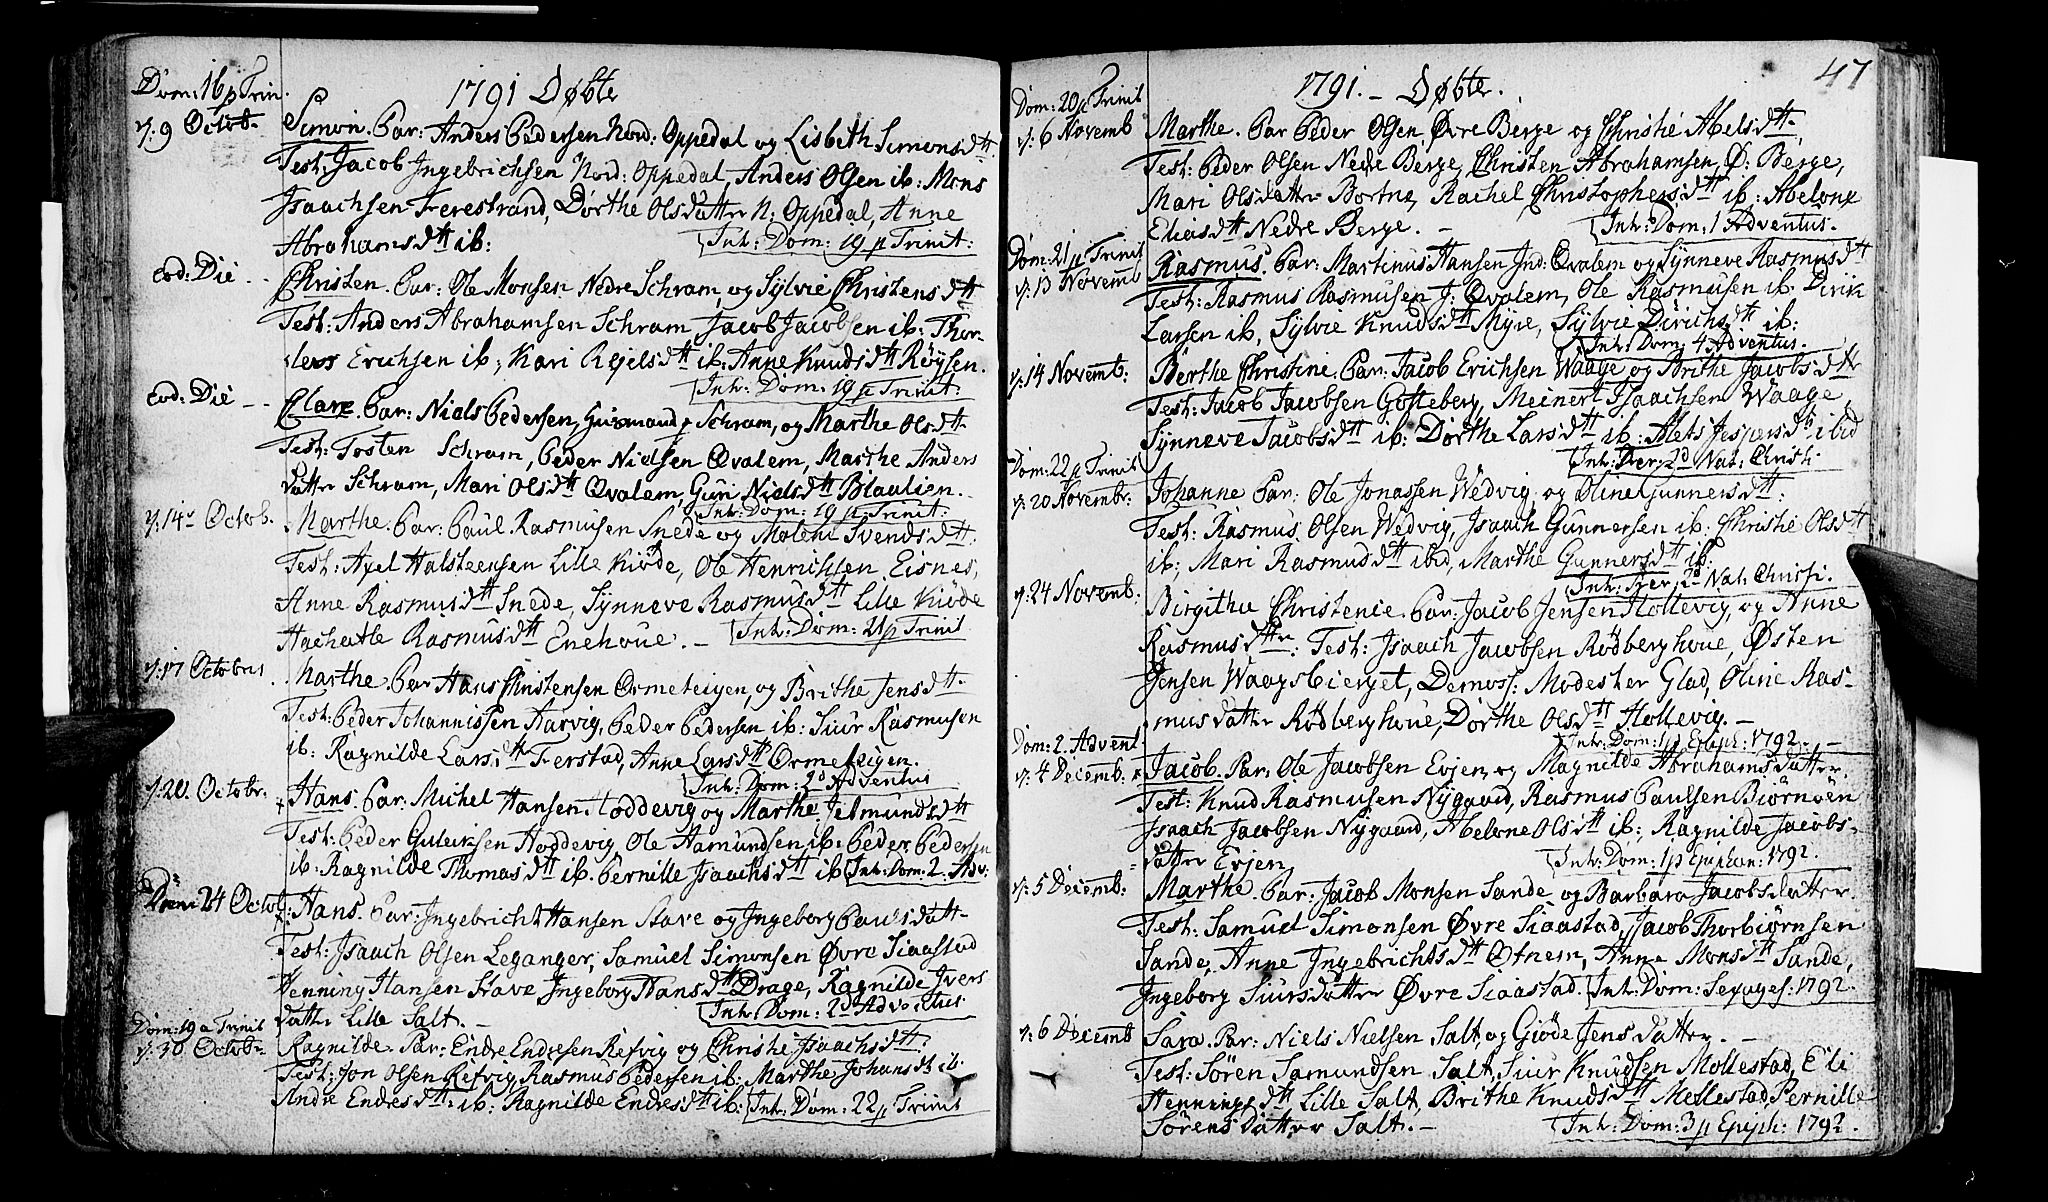 1791 Døbte
Dom: 16 p Trin.
d. 9 Octob.
Simon. Par: Anders Pedersen Nord: Oppedal og Lisbeth Simonsdtt
Test: Jacob Ingebrichsen Nord: Oppedal, Anders Olsen ib: Mons
Isaachsen Ferestrand, Dorthe Olsdatter N: Oppedal, Anne
Abrahamsdtt ib: Int: Dom: 19 p Trinit:
eod: Die
Christen. Par: Ole Monsen Nedre Schram, og Sylvie Christensdtt
Test: Anders Abrahamsen Schram, Jacob Jacobsen ib: Thor-
levs Erichsen ib; Kari Rejelsdtt ib: Anne Knudsdtt Røysen.
Int: Dom: 19 p Trinit:
eod: Die
Clare. Par: Niels Pedersen, Husmand p Schram, og Marthe Olsdtt
Test: Tosten Schram, Peder Nielsen Qvalem, Marthe Anders
datter Schram, Mari Olsdtt Qvalem, Guri Nielsdtt Blaulien.
Int: Dom: 19 p Trinit:
d. 14 Octob.
Marthe. Par: Paul Rasmusen Snede og Malene Svendsdtt:
Test: Axel Halsteensen Lille Kiøde, Ole Henrichsen Eisnes,
Anne Rasmusdtt Snede, Synneve Rasmusdtt Lille Kiøde
Rasmusdtt Enehoue. Int: Dom: 21 p Trinit
d. 17 Octobr
Marthe. Par Hans Christensen Ormeteigen, og Brithe Jensdtt
Test: Peder Johannissen Aarvig, Peder Pedersen ib: Siur Rasmusen
ib: Ragnilde Larsdtt Frerstad, Anne Larsdtt Ormeteigen.
Int: Dom: 2d Adventus
d. 20. Octobr.
Hans. Par: Michel Hansen Hoddevig og Marthe Jetmundsdtt
Test: Peder Gulleksen Hoddevig, Ole Aamundsen ib: Peder Pedersen
ib: Ragnilde Thomasdtt ib. Pernille Isaachsdtt ib Int: Dom: 2. Adv:
24 Octob:
Hans. Par: Ingebricht Hansen Stave og Ingeborg Paulsdatt-
Test: Isaach Olsen Leganger, Samuel Simonsen Øvre Siaastad
Henning Hansen Stave Ingeborg Hansdtt Drage, Ragnilde Ivers
datter Lille Salt. Int: Dom: 2d Adventus
Dom: 19 p Trinit
d. 30 Octobr.
Ragnilde. Par: Endre Endresen Refvig og Christie Isaachsdtt.
Test: Jon Olsen Refvig, Rasmus Pedersen ib: Marthe Johansdtt ib:
Andre Endresdtt ib: Ragnilde Endresdtt ib: Int: Dom: 22 p Trinit
47
1791. - Døbte.
Dom: 20 p Trinit
d. 6 Novemb
Marthe. Par Peder Olsen Øvre Berge og Christie Abelsdtt
Test: Peder Olsen Nedre Berge, Christen Abrahamsen Ø: Berge,
Mari Olsdatter Bortne, Rachel Christophersdtt ib: Abelone
Eliasdtt Nedre Berge. Int: Dom: 1 Adventus.
Dom: 21 p Trinit
d. 13 Novemb
Rasmus. Par: Martinus Hansen Ind: Qvalem og Synneve Rasmusdtt
Test: Rasmus Rasmusen J: Qvalem, Ole Rasmusen ib: Dirik
Larsen ib, Sylvie Knudsdtt Myre, Sylvie Dirichsdtt ib:
Int: Dom: 4 Adventus.
d. 14 Novemb:
Berthe Christine. Par: Jacob Erichsen Waage og Brithe Jacobsdtt
Test: Jacob Jacobsen Gosteberg, Meinert Isaachsen Waage
Synneve Jacobsdtt ib: Dorthe Larsdtt ib: Alets Jespersdtt ibid
Int: Fer: 2d Nat: Christi
Dom: 22 p Trinit
d. 20 Novembr:
Johanne Par: Ole Jonassen Wedvig og Oline Gunnersdtt:
Test: Rasmus Olsen Wedvig, Isaach Gunnersen ib: Christie Olsdtt
ib; Mari Rasmusdtt ibid, Marthe Gunnersdtt ib:
Int: Fer: 2d Nat: Christi.
d. 24 Novemb.
Birgithe Christenie. Par: Jacob Jensen Hollevig, og Anne
Rasmusdttr: Test: Isaach Jacobsen Rødberghoue, Østen
Jensen Waagsbierget, Demois: Modesther Glad, Oline Ras-
musdatter Rødberghoue, Dorthe Olsdtt Hollevig. -
Int: Dom: 1 p Epiph: 1792. -
Dom: 2. Advent
d. 4 Decemb.
Jacob. Par: Ole Jacobsen Evjen og Magnilde Abrahamsdatter.
Test: Knud Rasmusen Nygaard, Rasmus Paulsen Biørnøen
Isaach Jacobsen Nygaard, Abelone Olsdtt ib: Ragnilde Jacobs-
datter Evjen, Int: Dom: 1 p Epiphan: 1792.
d. 5 Decemb:
Marthe. Par: Jacob Monsen Sande og Barbara Jacobsdatter.
Test: Samuel Simonsen Øvre Siaastad, Jacob Thorbiørnsen
Sande, Anne Ingebrichtsdtt Otnem, Anne Monsdtt Sande,
Ingeborg Siursdatter Øvre Siaastad Int: Dom: Sexages: 1792.
d. 6 Decemb
Sara. Par: Niels Nielsen Salt, og Giøde Jensdatter. -
Test: Sören Samundsen Salt, Siur Knudsen Mollestad, Eli
Henningsdtt Lille Salt, Brithe Knudsdtt Mollestad Pernille
Sörensdatter Salt. - Int: Dom: 3 p Epiph: 1792.